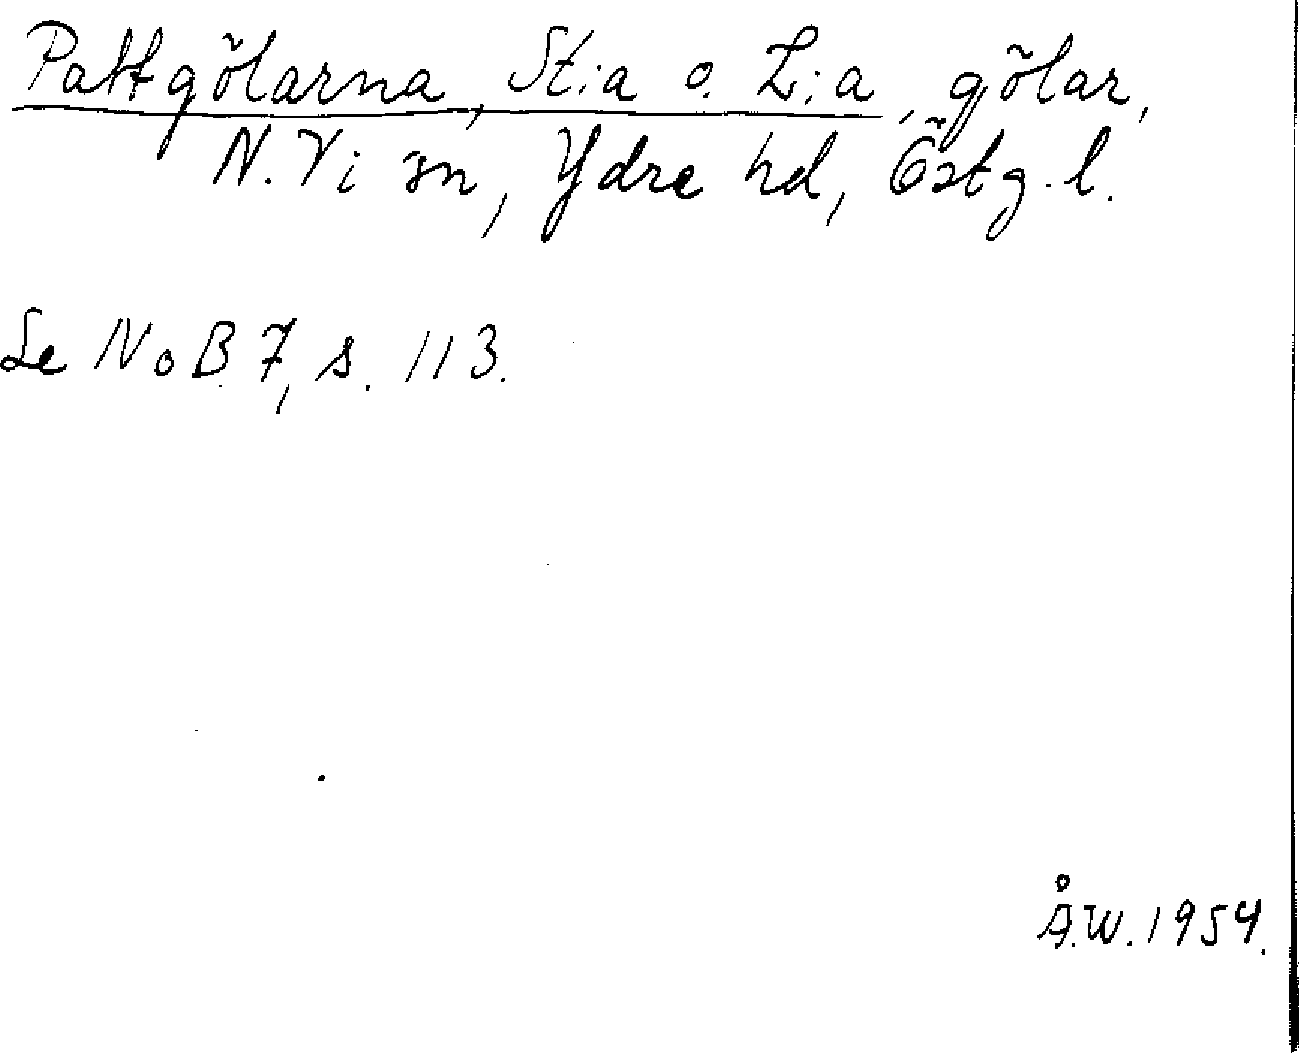 Pattgölarna, St:a o. L:a, gölar,
N. Vi sn, Ydre hd, Östg. l.
Se NoB 7, s. 113.
Å.W. 1954.